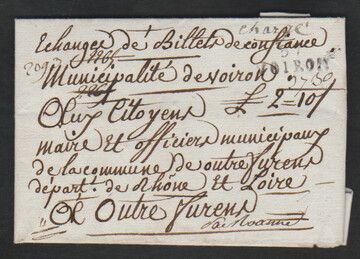 chargé
Echange de Billets de confiance
VOIRON
Municipalité de voiron
£ 2=10ſ
Aux Citoyens
maire Et officiers municipaux
de la commune de outre furens
départ. de Rhône Et Loire
A Outre furens